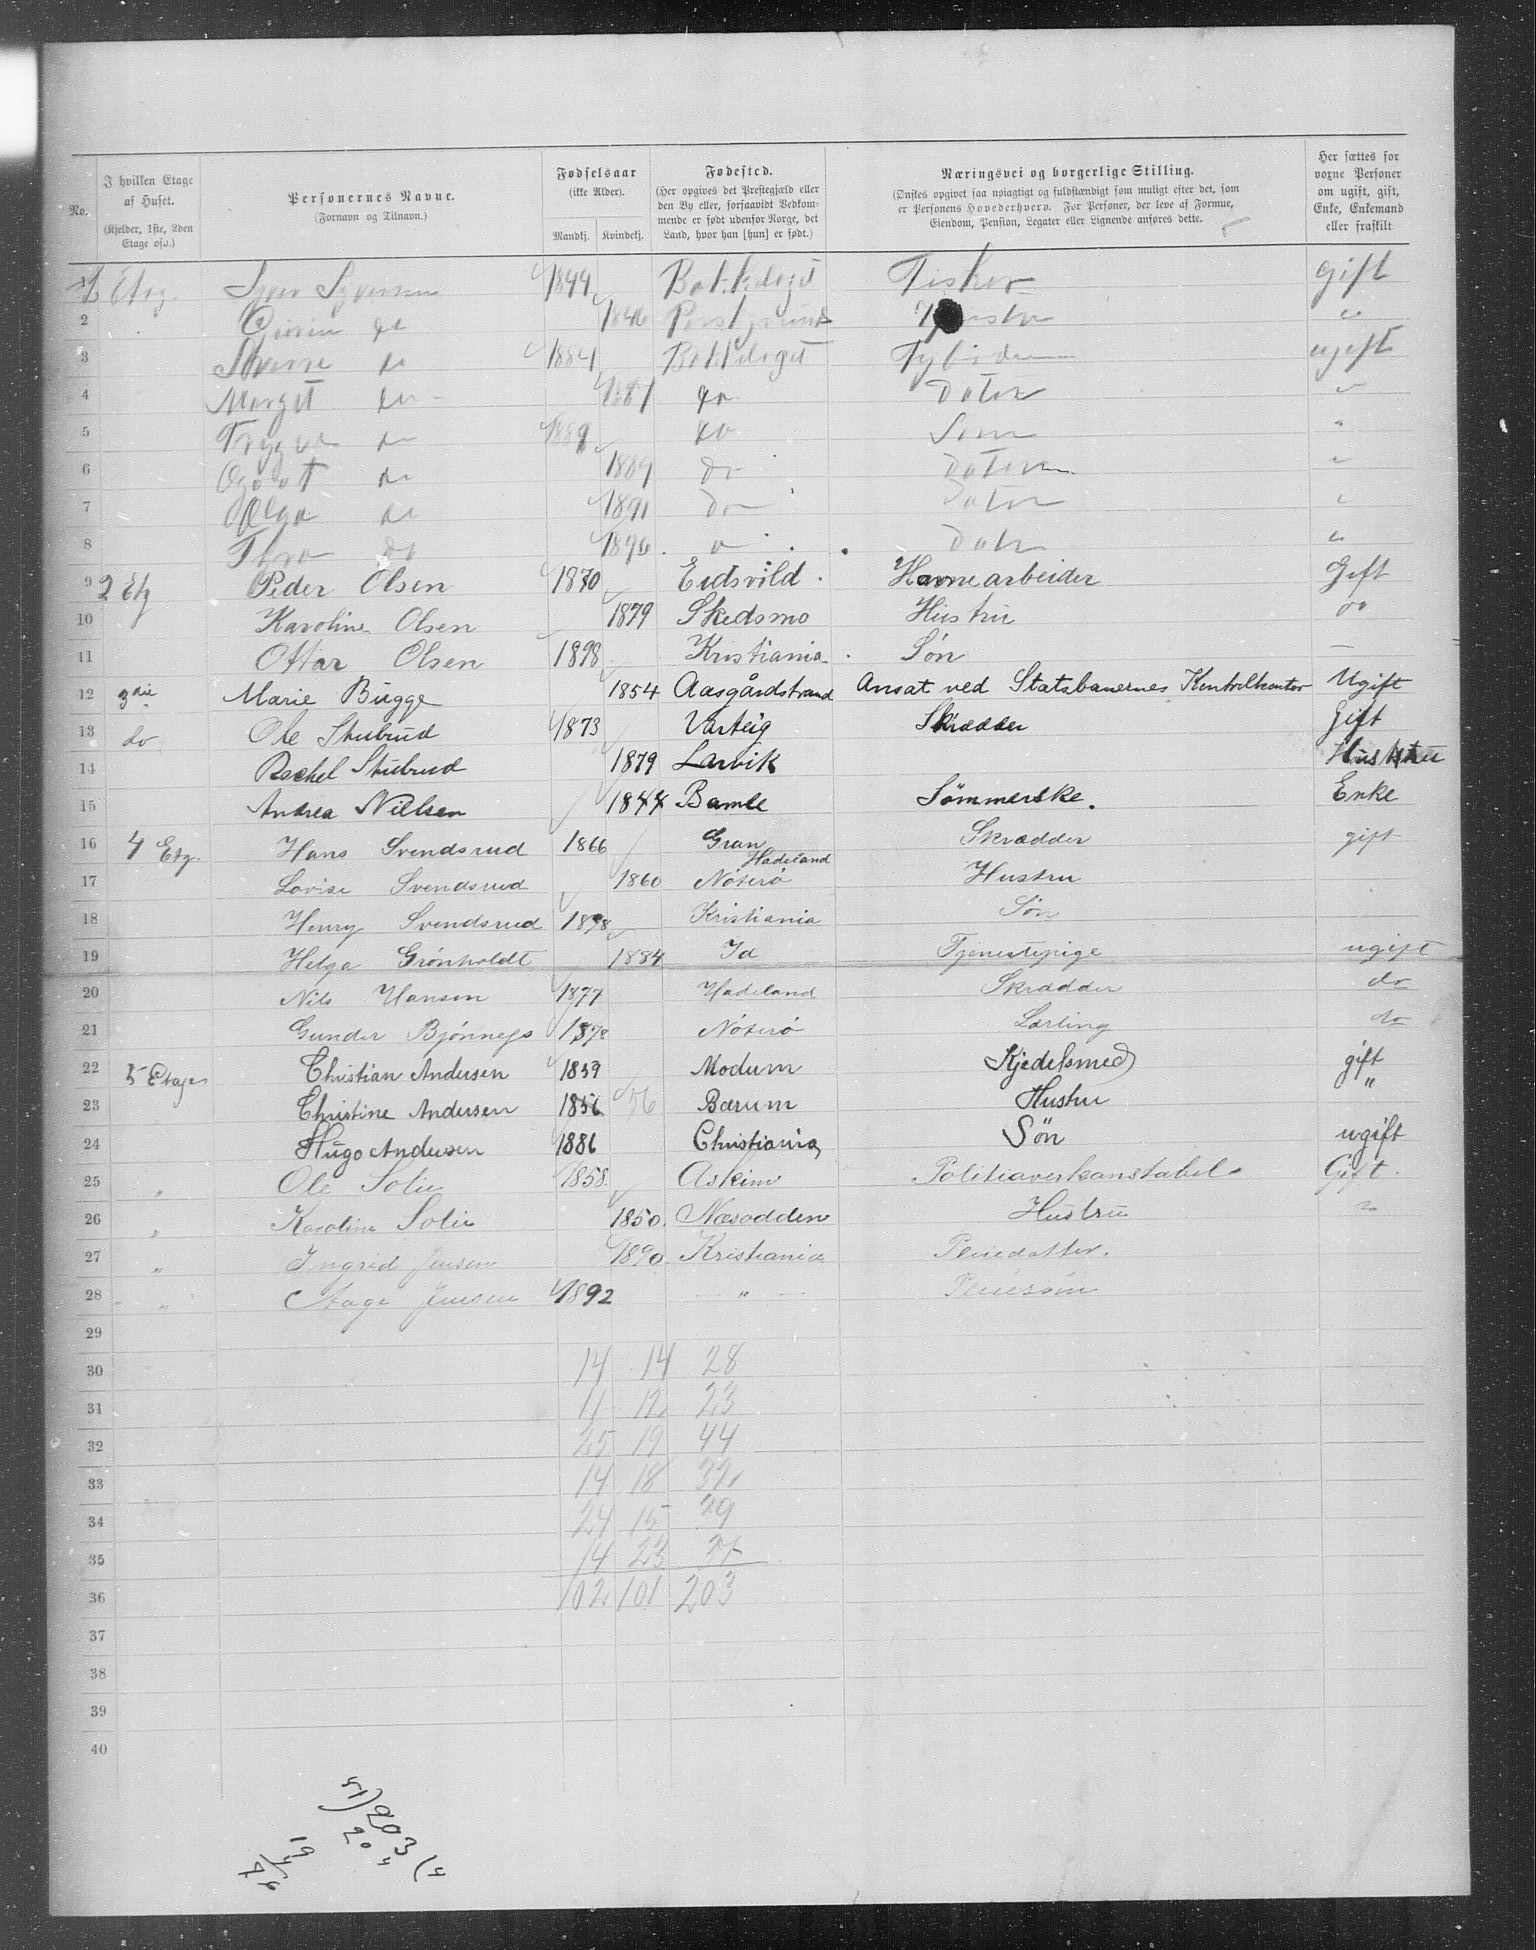 No.
I hvilken Etage af Huset. (Kjelder, 1ste, 2den Etage osv.)
Personernes Navne. (Fornavn og Tilnavn.)
Fødselsaar (ikke Alder). Mandkj. Kvindekj.
Fødested. (Her opgives det Prestegjæld eller den By eller, forsaavidt Vedkommende er født udenfor Norge, det Land, hvor han [hun] er født.)
Næringsvei og borgerlige Stilling. (Ønskes opgivet saa nøiagtigt og fuldstændigt som muligt efter det, som er Personens Hovederhverv. For Personer, der leve af Formue, Eiendom, Pension, Legater eller Lignende anføres dette.
Her sættes for voxne Personer om ugift, gift, Enke, Enkemand eller fraskilt
1 Etg. 1844 Bakkelaget Fisker gift
2 do 1846 "
3 do 1884 Bakkelaget ugift
4 Margit do 1887 do Dater "
5 Trygve do do Søn "
6 do 1889 do Dater "
7 Olga do 1891 do Dater "
8 do 1896 Dater "
9 2 Etg Peder Olsen 1870 Eidsvold Havnearbeider Gift
10 Karoline Olsen 1879 Skedsmo Hustru do
11 Ottar Olsen 1898 Kristiania Søn —
12 3die Marie Bugge 1854 Aasgårdstrand Ansat ved Statsbanernes Kontrolkontor Ugift
13 do Ole Stubrud 1873 Varteig Skrædder Gift
14 Rachel Stubrud 1879 Larvik Hustru
15 Andrea Nielsen 1844 Bamle Sömmerske. Enke
16 4 Etg. Hans Svendsrud 1866 Gran Hadeland Skrædder gift
17 Lovise Svendsrud 1860 Nøterø Hustru
18 Henry Svendsrud 1898 Kristiania Søn
19 Helga Grønholdt 1884 Id Tjenestepige ugift
20 Nils Hansen 1877 Hadeland Skrædder do
21 Gunder 1878 Nøterø Lærling do
22 5 Etage Christian Andersen 1859 Modum Kjedelsmed gift
23 Christine Andersen 1856 56 Bærum Hustru "
24 Hugo Andersen 1886 Christiania Sön ugift
25 " Ole Solie 1858. Askim Politioverkonstabel Gift.
26 " Karoline Solie 1850. Næsodden Hustru "
27 " Ingrid Jensen 1890. Kristiania Pleiedatter.
28 " Aage Jensen 1892 " Pleiesøn
29
30 14 14 28
31 11 12 23
32 25 19 44
33 14 18 32
34 24 15 39
35 14 23 37
36 102 101 203
37
38
39
40
51) 203 (4
204